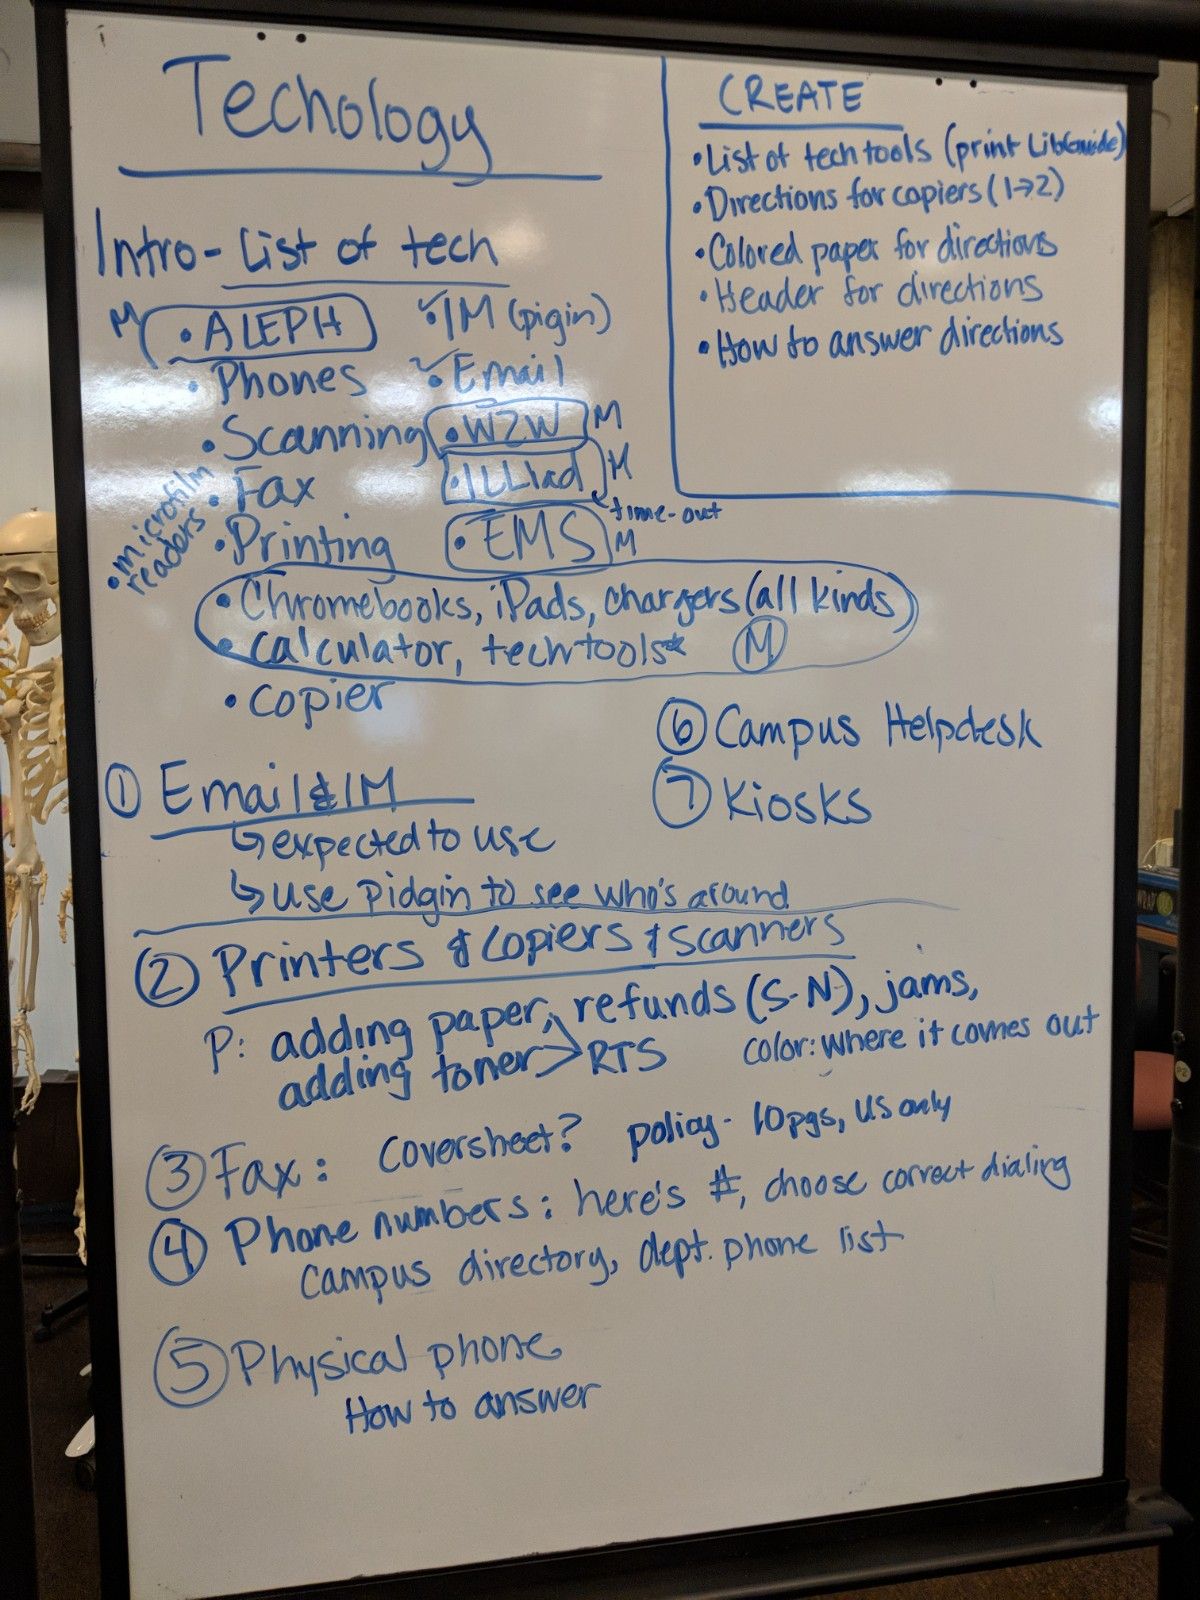 Techology
Intro - List of tech
M • ALEPH
• Phones
• Scanning
• Fax
• microfilm
readers
• Printing
✓• IM (pigin)
✓• Email
• WZW M
• ILLiad M
time-out
• EMS M
• Chromebooks, iPads, chargers (all kinds
• calculator, tech tools* M
• copier
CREATE
• List of tech tools (print LibGuide)
• Directions for copiers (1→2)
• Colored paper for directions
• Header for directions
• How to answer directions
① Email & IM
↳ expected to use
↳ use pidgin to see who's around
② Printers & Copiers & scanners
P: adding paper, refunds (S-N), jams,
adding toner > RTS color: where it comes out
③ Fax: coversheet? policy - 10pgs, US only
④ Phone numbers: here's #, choose correct dialing
campus directory, dept. phone list
⑤ Physical phone
How to answer
⑥ Campus Helpdesk
⑦ Kiosks